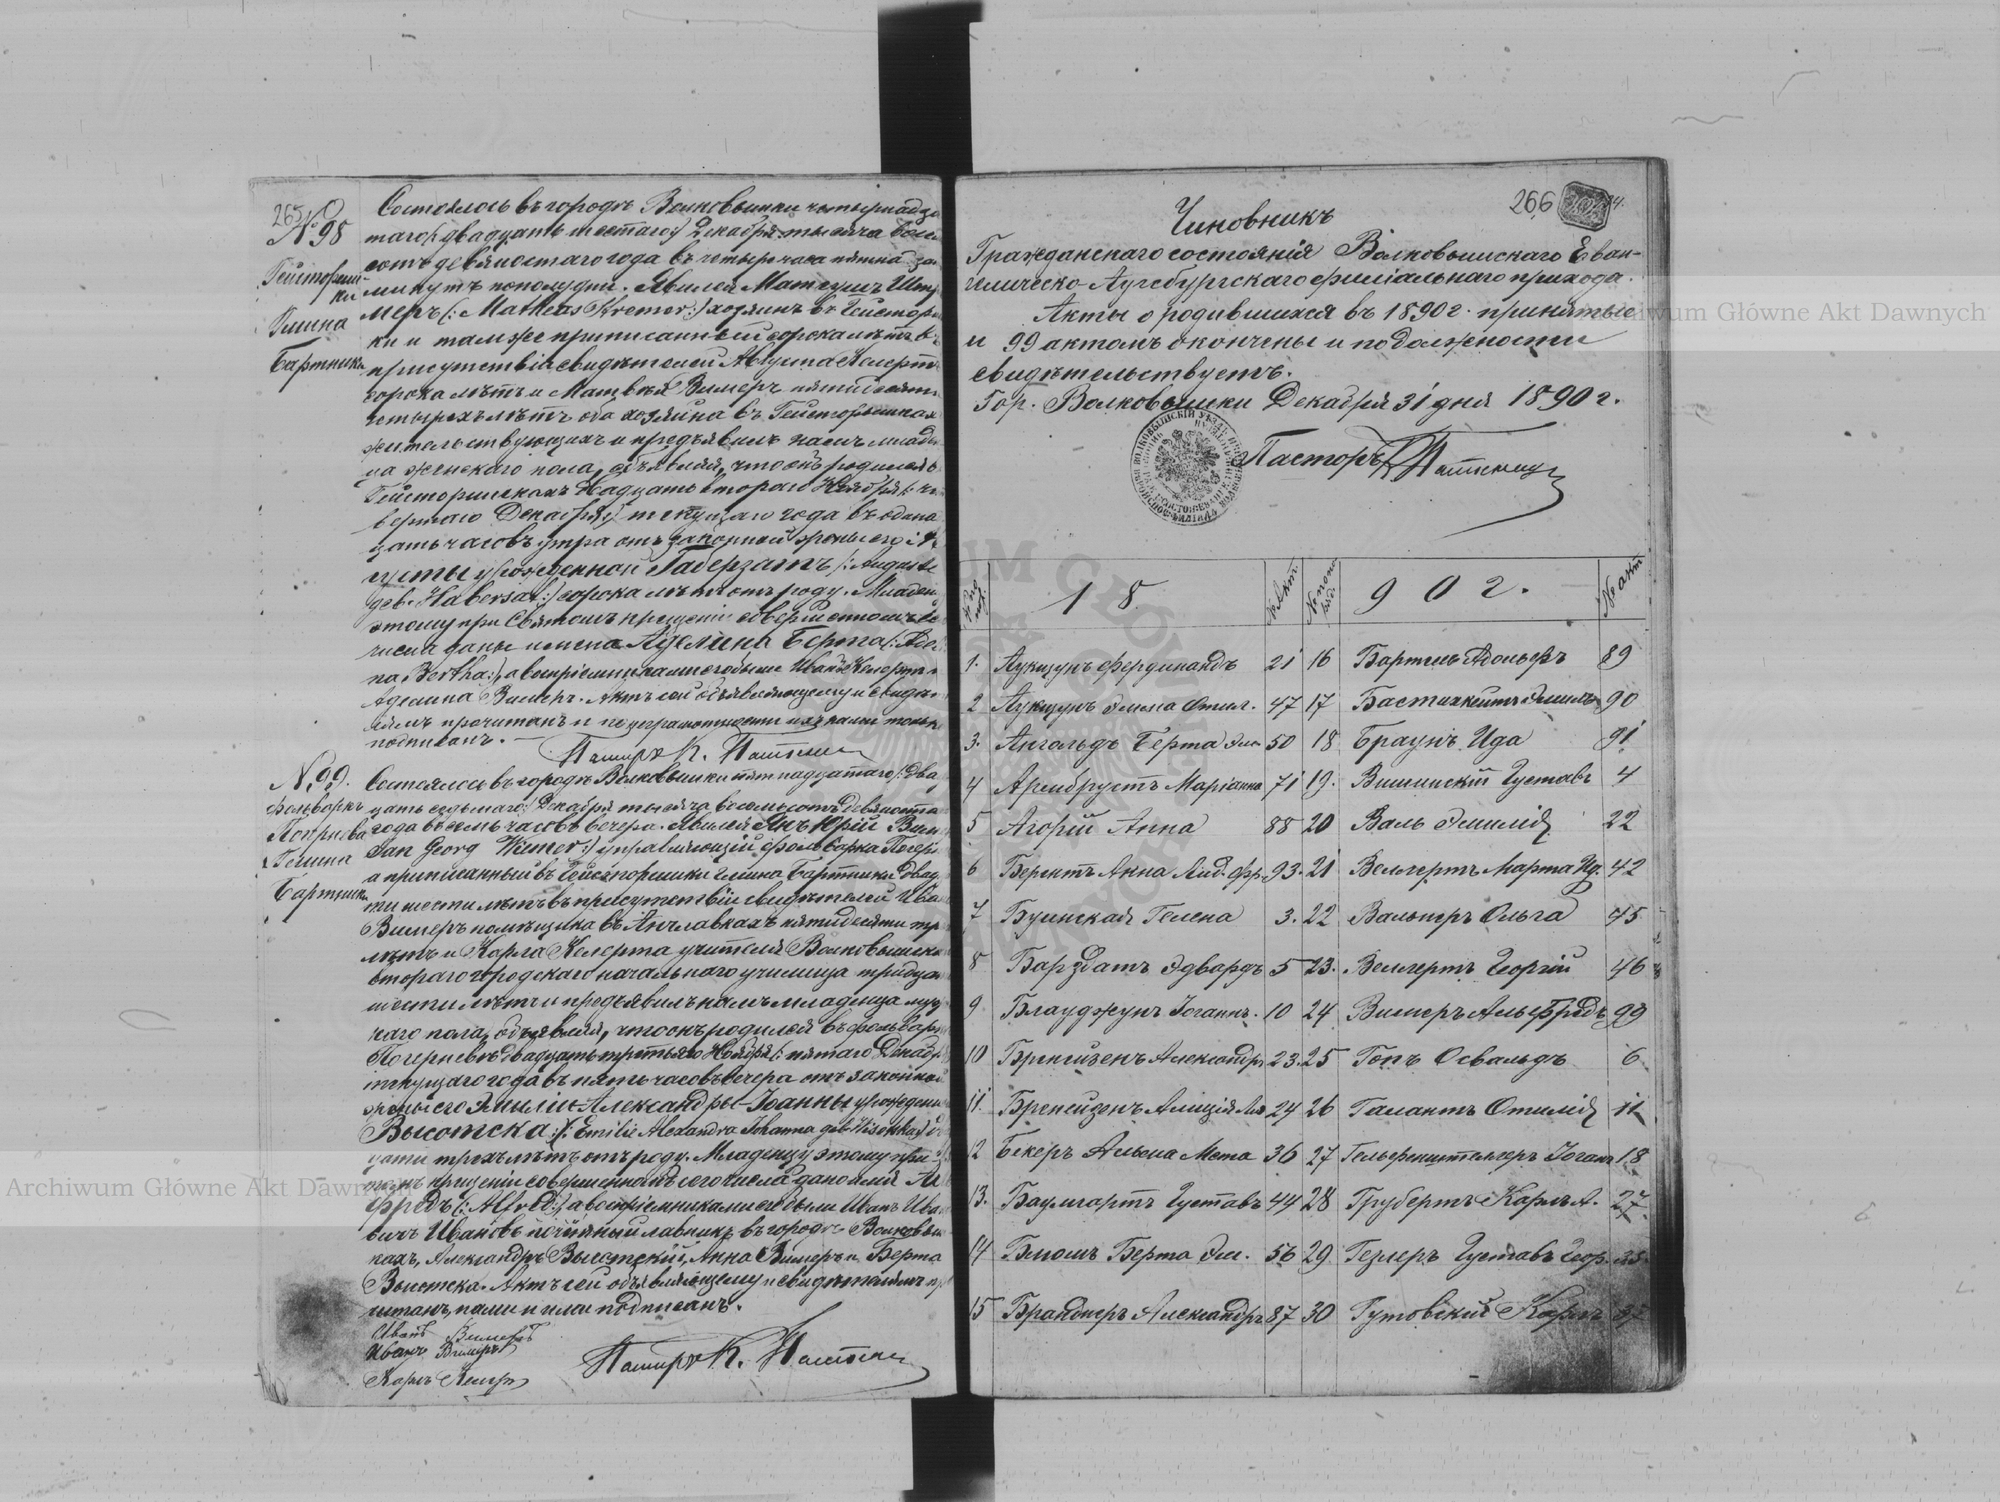 265
№ 98
Гейсториш
ки
Гмина
Бартники
Состоялось въ городѣ Волковышки четырнадца
таго /: двадцать шестаго :/ Декабря тысяча восем
сотъ девяностаго года въ четыре часа
минутъ пополудни. Явился Матеушъ
меръ /: Matheas Kremer :/ хозяинъ въ Гейстори
ки и тамже приписанный сорока лѣтъ въ
присутствіи свидѣтелей Августа Келерта
сорока лѣтъ и Матвѣя Вимеръ пятидесяти
четырехъ лѣтъ оба хозяйна въ Гейсторишках
жительствующихъ и предъявилъ намъ младен
ца женскаго пола, объявляя, что онъ родился въ
Гейсторишкахъ двадцать втораго Ноября /: че
вертаго Декабря :/ текущаго года въ одина
цать часовъ утра отъ законной жены его Ав
густы урожденной Габерзатъ /: Auguste
геб. Habersat :/ сорока лѣтъ отъ роду. Младен
этому при Святомъ крещеніи совершенномъ се
числа даны имена Аделина Берта /: Ade
na, Bertha :/, а воспріемниками его были Иванъ Келертъ и
Аделина Вимеръ. Актъ сей объявляющему и свидѣ
лямъ прочитанъ и по неграмотности ихъ нами только
подписанъ. —
Пасторъ К.
№ 99.
Фольваркъ
Погернева
Гмина
Бартники
Состоялось въ городѣ Волковышки пятнадцатаго /: два
цать седьмаго :/ Декабря тысяча восемьсотъ девяноста
года въ семь часовъ вечера. Явился Янъ Юрій Вим
Jan Georg Wiemer :/ управляющій фольварка Погери
а приписанный въ Гейсторишки гмина Бартники двад
ти шести лѣтъ въ присутствіи свидѣтелей Ива
Вимеръ помѣщика въ Анчлавкахъ пятидесяти тр
лѣтъ и Карла Келерта учителя Волковышска
втораго городскаго начальнаго училища тридца
шести лѣтъ и предъявилъ намъ младенца муж
каго пола, объявляя, что онъ родился въ фольварк
Погерневѣ двадцать третьяго Ноября /: пятаго Декабр
текущаго года въ пять часовъ вечера отъ законной
жены его Эмиліи-Александры-Іоанны урожден
Высотска /: Emilie Alexandra Johanna geb. Wisotzka :/ д
цати трехъ лѣтъ отъ роду. Младенцу этому при
томъ крещеніи совершенномъ сего числа дано имя Ал
фредъ /: Alfred :/ а воспріемниками его были Иванъ Ива
вичъ Ивановъ почетный лавникъ въ городѣ Волковыш
кахъ, Александръ Высотскій, Анна Вимеръ и Берта
Высотска. Актъ сей объявляющему и свидѣтелямъ пр
читанъ, нами и ими подписанъ.
Иванъ Вимеръ
Иванъ Вимеръ
Карлъ Келертъ
Пасторъ К.
266
Чиновникъ
Гражданскаго состоянія Волковышскаго Еван-
гелическо-Аугсбургскаго филіальнаго прихода.
Акты о родившихся въ 1890 г. принятые
и 99 актомъ окончены и по должности
свидѣтельствуетъ.
Гор. Волковышки Декабря 31 дня 1890 г.
Пасторъ К.
№ по
пор. 18 № Акт. № по по
ряд. 90 г. № акт.
1. Аукщунъ Фердинандъ 21 16 Бартель Адольфъ 89
2 Аукщунъ Эмма Отил. 47 17 Бастикейтъ Эмиль 90
3. Ангольдъ Берта Эм. 50 18 Браунъ Ида 91
4 Армбрустъ Маріанна 71 19. Вишинскій Густавъ 4
5 Агорій Анна 88 20 Валь Эмилія 22
6 Берентъ Анна Лид. Фр. 93. 21 Велгертъ Марта Ид. 42
7 Буинская Гелена 3. 22 Вальнеръ Ольга 45
8 Барздатъ Эдвардъ 5 23. Велгертъ Георгій 46
9 Блауджунъ Іоганнъ. 10 24 Вимеръ Альфредъ 99
10 Бренсизенъ Александръ 23. 25 Гопъ Освальдъ 6
11. Бренсизенъ Алиція 24 26 Галантъ Отилія 11
12 Бекеръ Альма Мета 36 27 Гельфенштелеръ Іоганъ 18
13. Баумгартъ Густавъ 44 28 Грубертъ Карлъ А. 27
14 Блюмъ Берта Эм. 56 29 Герлеръ Густавъ Геор. 35
15 Бранднеръ Александръ 87 30 Гутовскій Карлъ 37
Archiwum Główne Akt Dawnych
Archiwum Główne Akt Dawnych